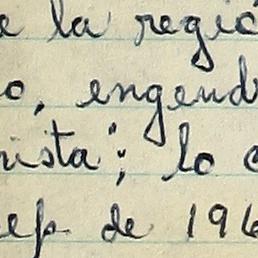 e la regió
o, engend
nista"; lo c
ep de 196